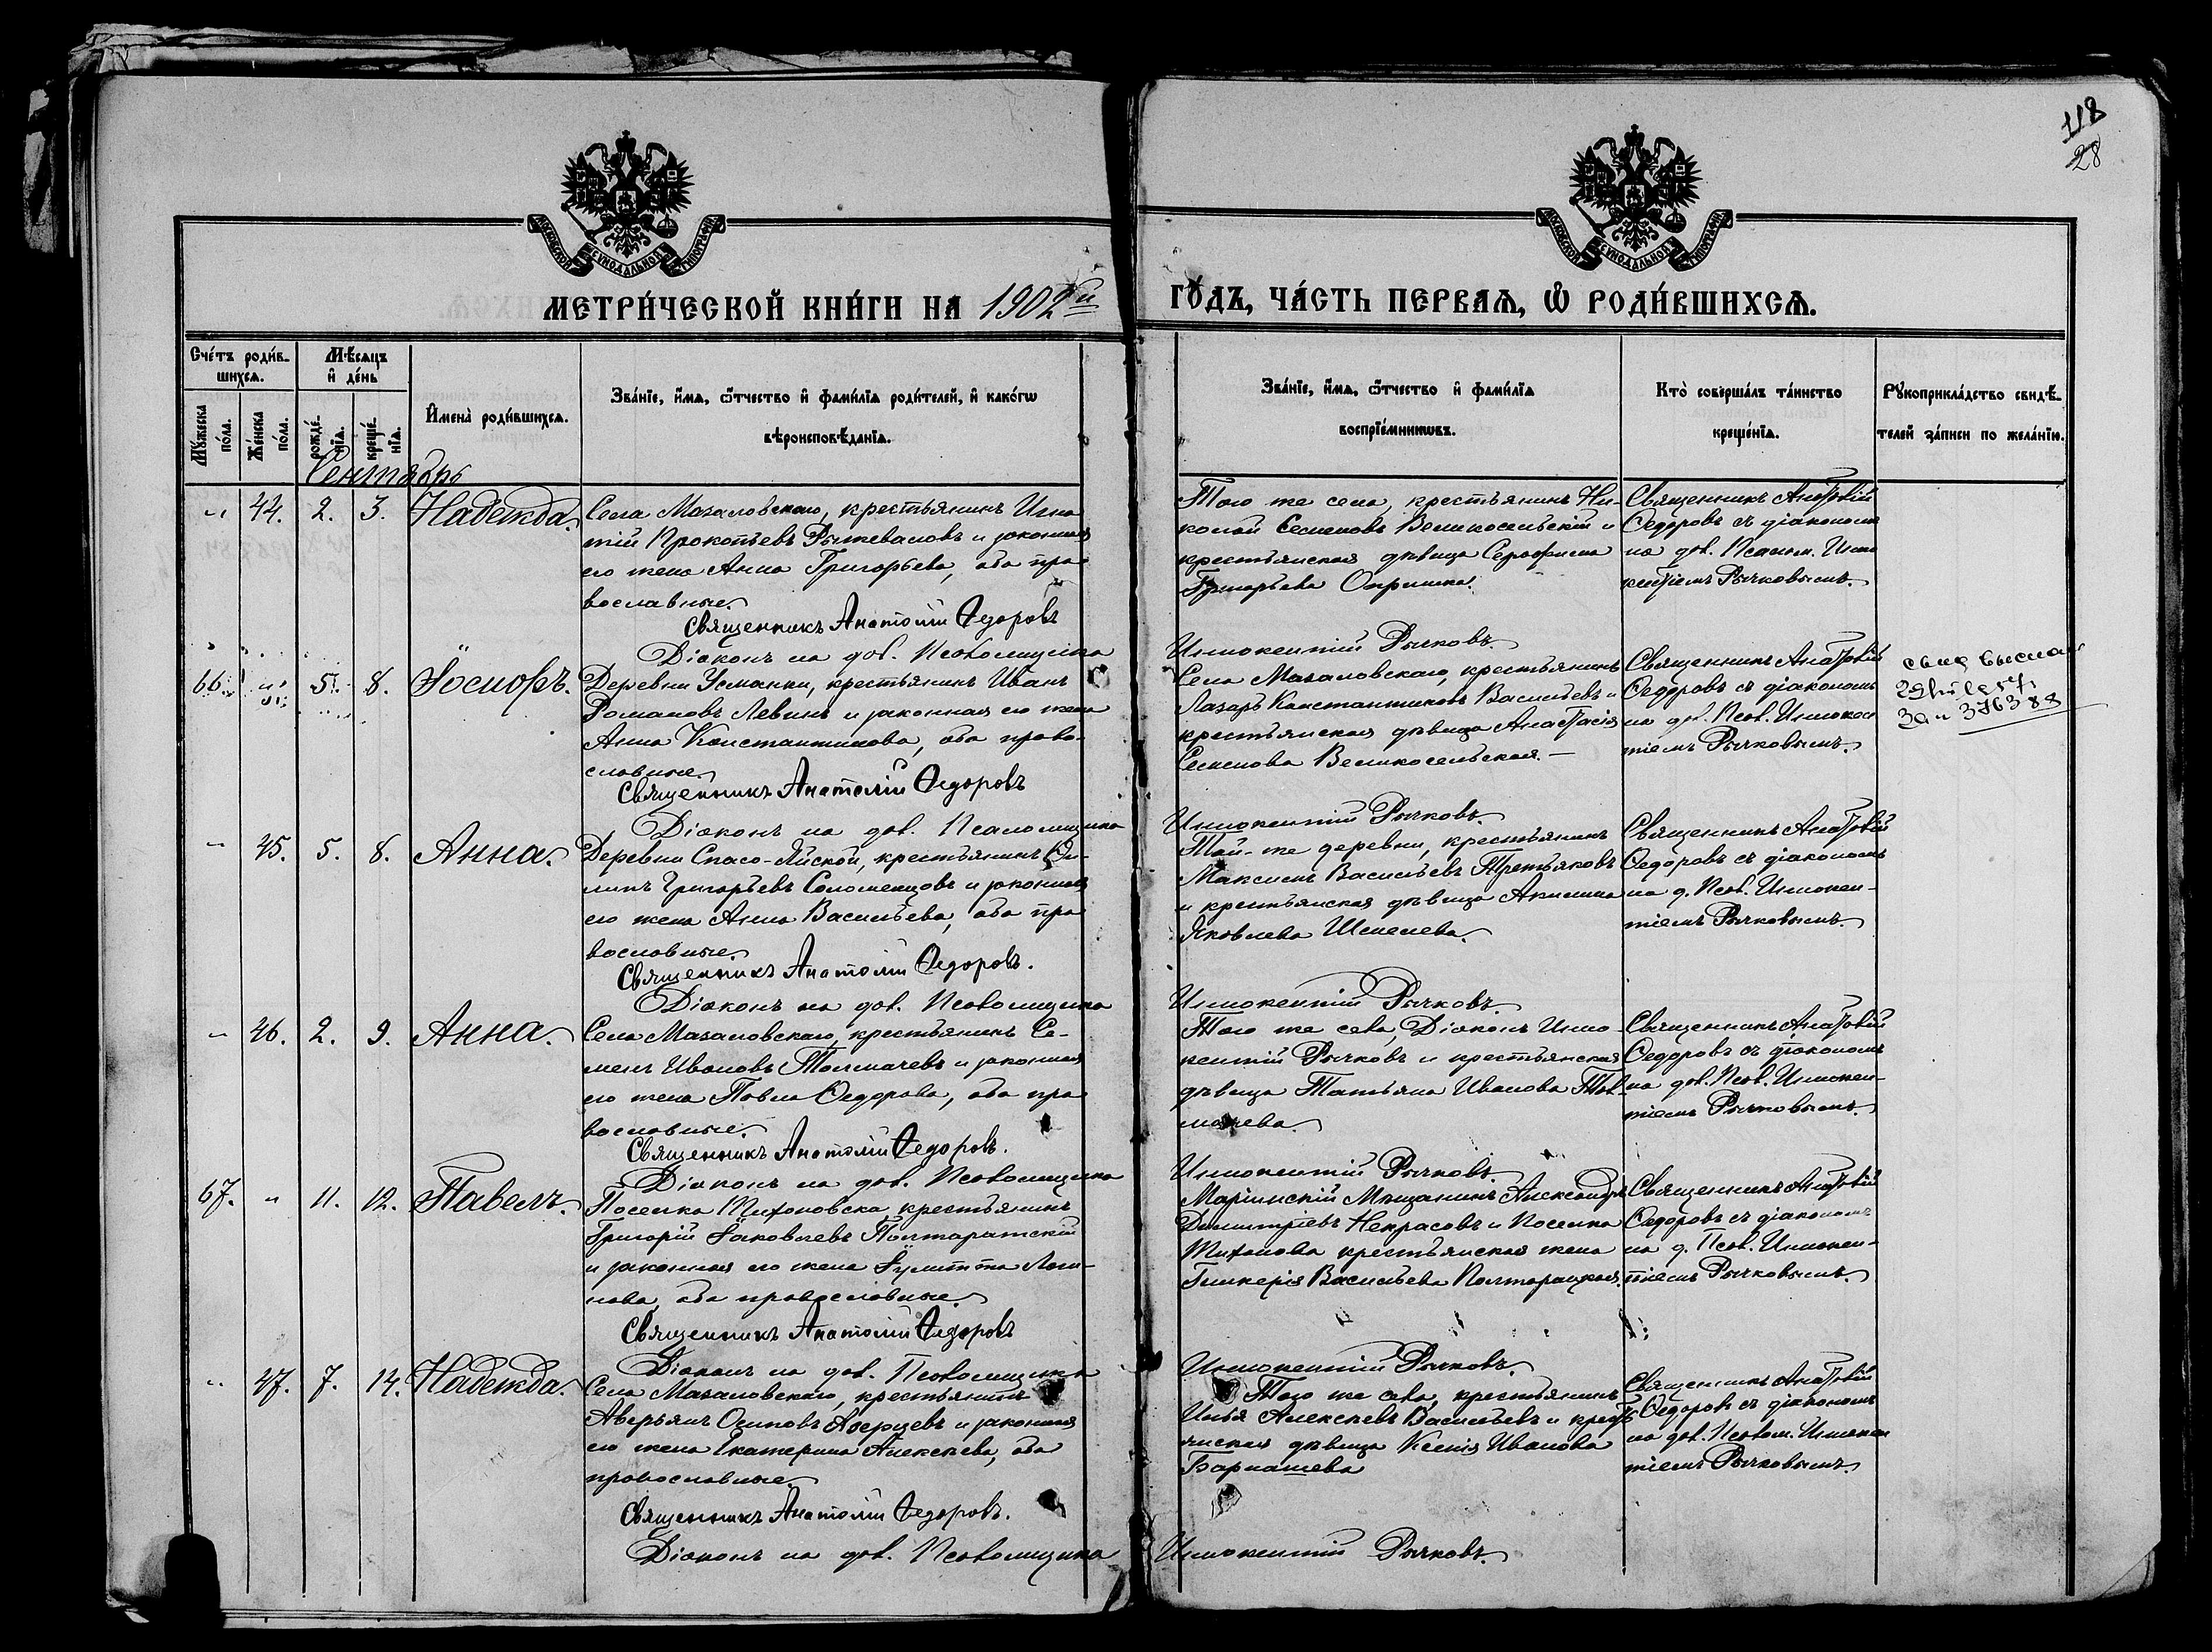 118
28
МОСКОВСКОЙ СѴНОДАЛЬНОЙ ТИПОГРАФІИ
МОСКОВСКОЙ СѴНОДАЛЬНОЙ ТИПОГРАФІИ
МЕТРИ́ЧЕСКОЙ КНИ́ГИ НА 1902й
ГО́ДЪ, ЧА́СТЬ ПЕ́РВАѦ, Ѡ҆ РОДИ́ВШИХСѦ.
Сче́тъ роди́в-
шихсѧ.
Мꙋ́жеска по́ла.
Же́нска по́ла.
Мѣ́сѧцъ
и҆ де́нь
рожде́-
нїѧ.
креще́-
нїѧ.
И҆мена̀ роди́вшихсѧ.
Зва́нїе, и҆́мѧ, ѻ҆́тчество и҆ фами́лїѧ роди́телей, и҆ како́гѡ
вѣроисповѣ́данїѧ.
Зва́нїе, и҆́мѧ, ѻ҆́тчество и҆ фами́лїѧ
воспрїе́мникѡвъ.
Кто̀ соверша́лъ та́инство
креще́нїѧ.
Рꙋкоприкла́дство свидѣ́-
телей за́писи по жела́нїю.
Сентябрь
" 44. 2. 3. Надежда.
Села Мазаловскаго, крестьянинъ Игна
тій Прокопьевъ Рыжеваловъ и законная
его жена Анна Григорьева, оба пра
вославные.
Священникъ Анатолій Ѳедоровъ
Діаконъ на дол. Псаломщика
Того же села, крестьянинъ Ни-
колай Семеновъ Великосельскій и
крестьянская дѣвица Серафима
Григорьева
Иннокентій Рычковъ.
Священникъ Анатолій
Ѳедоровъ съ діакономъ
на дол. Псалом. Инно
кентіемъ Рычковымъ.
66. " 5. 8. Іосифъ.
Деревни Усманки, крестьянинъ Иванъ
Романовъ Левинъ и законная его жена
Анна Константинова, оба право-
славные.
Священникъ Анатолій Ѳедоровъ
Діаконъ на дол. Псаломщика
Села Мазаловскаго, крестьянинъ
Лазарь Константиновъ Васильевъ и
крестьянская дѣвица Анастасія
Семенова Великосельская. —
Иннокентій Рычковъ.
Священникъ Анатолій
Ѳедоровъ съ діакономъ
на дол. Псал. Иннокен
тіемъ Рычковымъ.
376388
" 45. 5. 8. Анна.
Деревни Спасо-Яйской, крестьянинъ Фи-
липъ Григорьевъ Соломенцовъ и законная
его жена Анна Васильева, оба пра
вославные.
Священникъ Анатолій Ѳедоровъ.
Діаконъ на дол. Псаломщика
Той-же деревни, крестьянинъ
Максимъ Васильевъ Третьяковъ
и крестьянская дѣвица Акилина
Яковлева Шмелева.
Иннокентій Рычковъ.
Священникъ Анатолій
Ѳедоровъ съ діакономъ
на д. Псал. Иннокен-
тіемъ Рычковымъ.
" 46. 2. 9. Анна.
Села Мазаловскаго, крестьянинъ Се-
менъ Ивановъ Толмачевъ и законная
его жена Павла Ѳедорова, оба пра
вославные.
Священникъ Анатолій Ѳедоровъ.
Діаконъ на дол. Псаломщика
Того же села, Діаконъ Инно-
кентій Рычковъ и крестьянская
дѣвица Татьяна Иванова Тол-
мачева.
Иннокентій Рычковъ.
Священникъ Анатолій
Ѳедоровъ съ діакономъ
на дол. Псал. Иннокен-
тіемъ Рычковымъ.
67. " 11. 12. Павелъ.
Поселка Тихоновска, крестьянинъ
Григорій Іаковлевъ Полтаратскій
и законная его жена Іулитта Логи-
нова, оба православные.
Священникъ Анатолій Ѳедоровъ
Діаконъ на дол. Псаломщика
Маріинскій Мѣщанинъ Александръ
Димитріевъ Некрасовъ и поселка
Тихонова крестьянская жена
Гликерія Васильева Полторацкая.
Иннокентій Рычковъ.
Священникъ Анатолій
Ѳедоровъ съ діакономъ
на д. Псал. Иннокен-
тіемъ Рычковымъ.
" 47. 7. 14. Надежда.
Села Мазаловскаго, крестьянинъ
Аверьянъ Осиповъ и законная
его жена Екатерина Алексѣева, оба
православные.
Священникъ Анатолій Ѳедоровъ.
Діаконъ на дол. Псаломщика
Того же села, крестьянинъ
Илья Алексѣевъ Васильевъ и кресть
янская дѣвица Ксенія Иванова
Барнашева
Иннокентій Рычковъ.
Священникъ Анатолій
Ѳедоровъ съ діакономъ
на дол. Псалом. Иннокен
тіемъ Рычковымъ.